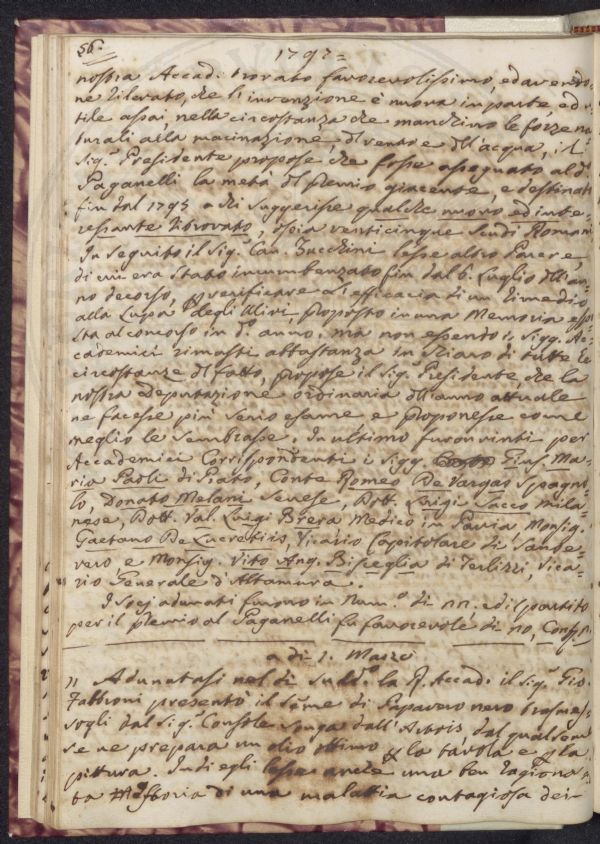 56.
1797=
nostra Accad. trovato favorevolissimo, ed avendo
ne rilevato, che l'invenzione è nuova in parte, ed u
tile assai, nella circostanza che manchino le forze na
turali alla macinazione, del vento e dell'acqua, il
Sig. Presidente propose, che fosse assegnato al d.
Paganelli la metà del premio giacente, e destinato
fin dal 1795 a chi suggerisse qualche nuovo ed inte-
ressante ritrovato, ossia venticinque Scudi Romani
In seguito il Sig. Can. Zucchini lesse altro Parere,
di cui era stato incumbenzato fin dal 6. Luglio dell'an
no decorso, verificare l'efficacia di un rimedio
alla Lupa degli Ulivi, proposto in una Memoria espo
sta al concorso in do. anno: ma non essendo i Sigg. Ac-
cademici rimasti abbastanza in chiaro di tutte le
circostanze del fatto, propose il Sig. Presidente, che la
nostra deputazione ordinaria dell'anno attuale
ne facesse più serio esame e proponesse come
meglio le sembrasse. In ultimo furon vinti per
Accademici Corrispondenti i Sigg. Gius. Ma-
ria Paoli di Prato, Conte Romeo De Vargas Spagno
lo, Donato Melani Senese, Dott. Luigi Sacco mila
nese, Dott. Val. Luigi Brera Medico in Pavia Monsig.
Gaetano De Lucretiis, Vicario Capitolare di Sanse-
vero, e Monsig. Vito Ang. Bisceglia di Terlizzi, Vica-
rio Generale d'Altamura.
I socj adunati furono in Num.o di 11. ed il partito
per il premio al Paganelli fu favorevole di 10,
a dì 1. Marzo
" Adunatasi nel dì sudd.o la R. Accad. il Sig. Gio.
Fabbroni presentò il seme di Papavero nero
sogli dal Sig. Console dall' Artois, dal qual seme
se ne prepara un olio ottimo la tavola e la
pittura. Indi egli lesse anche una ben ragiona
ta Memoria di una malattia contagiosa dei-